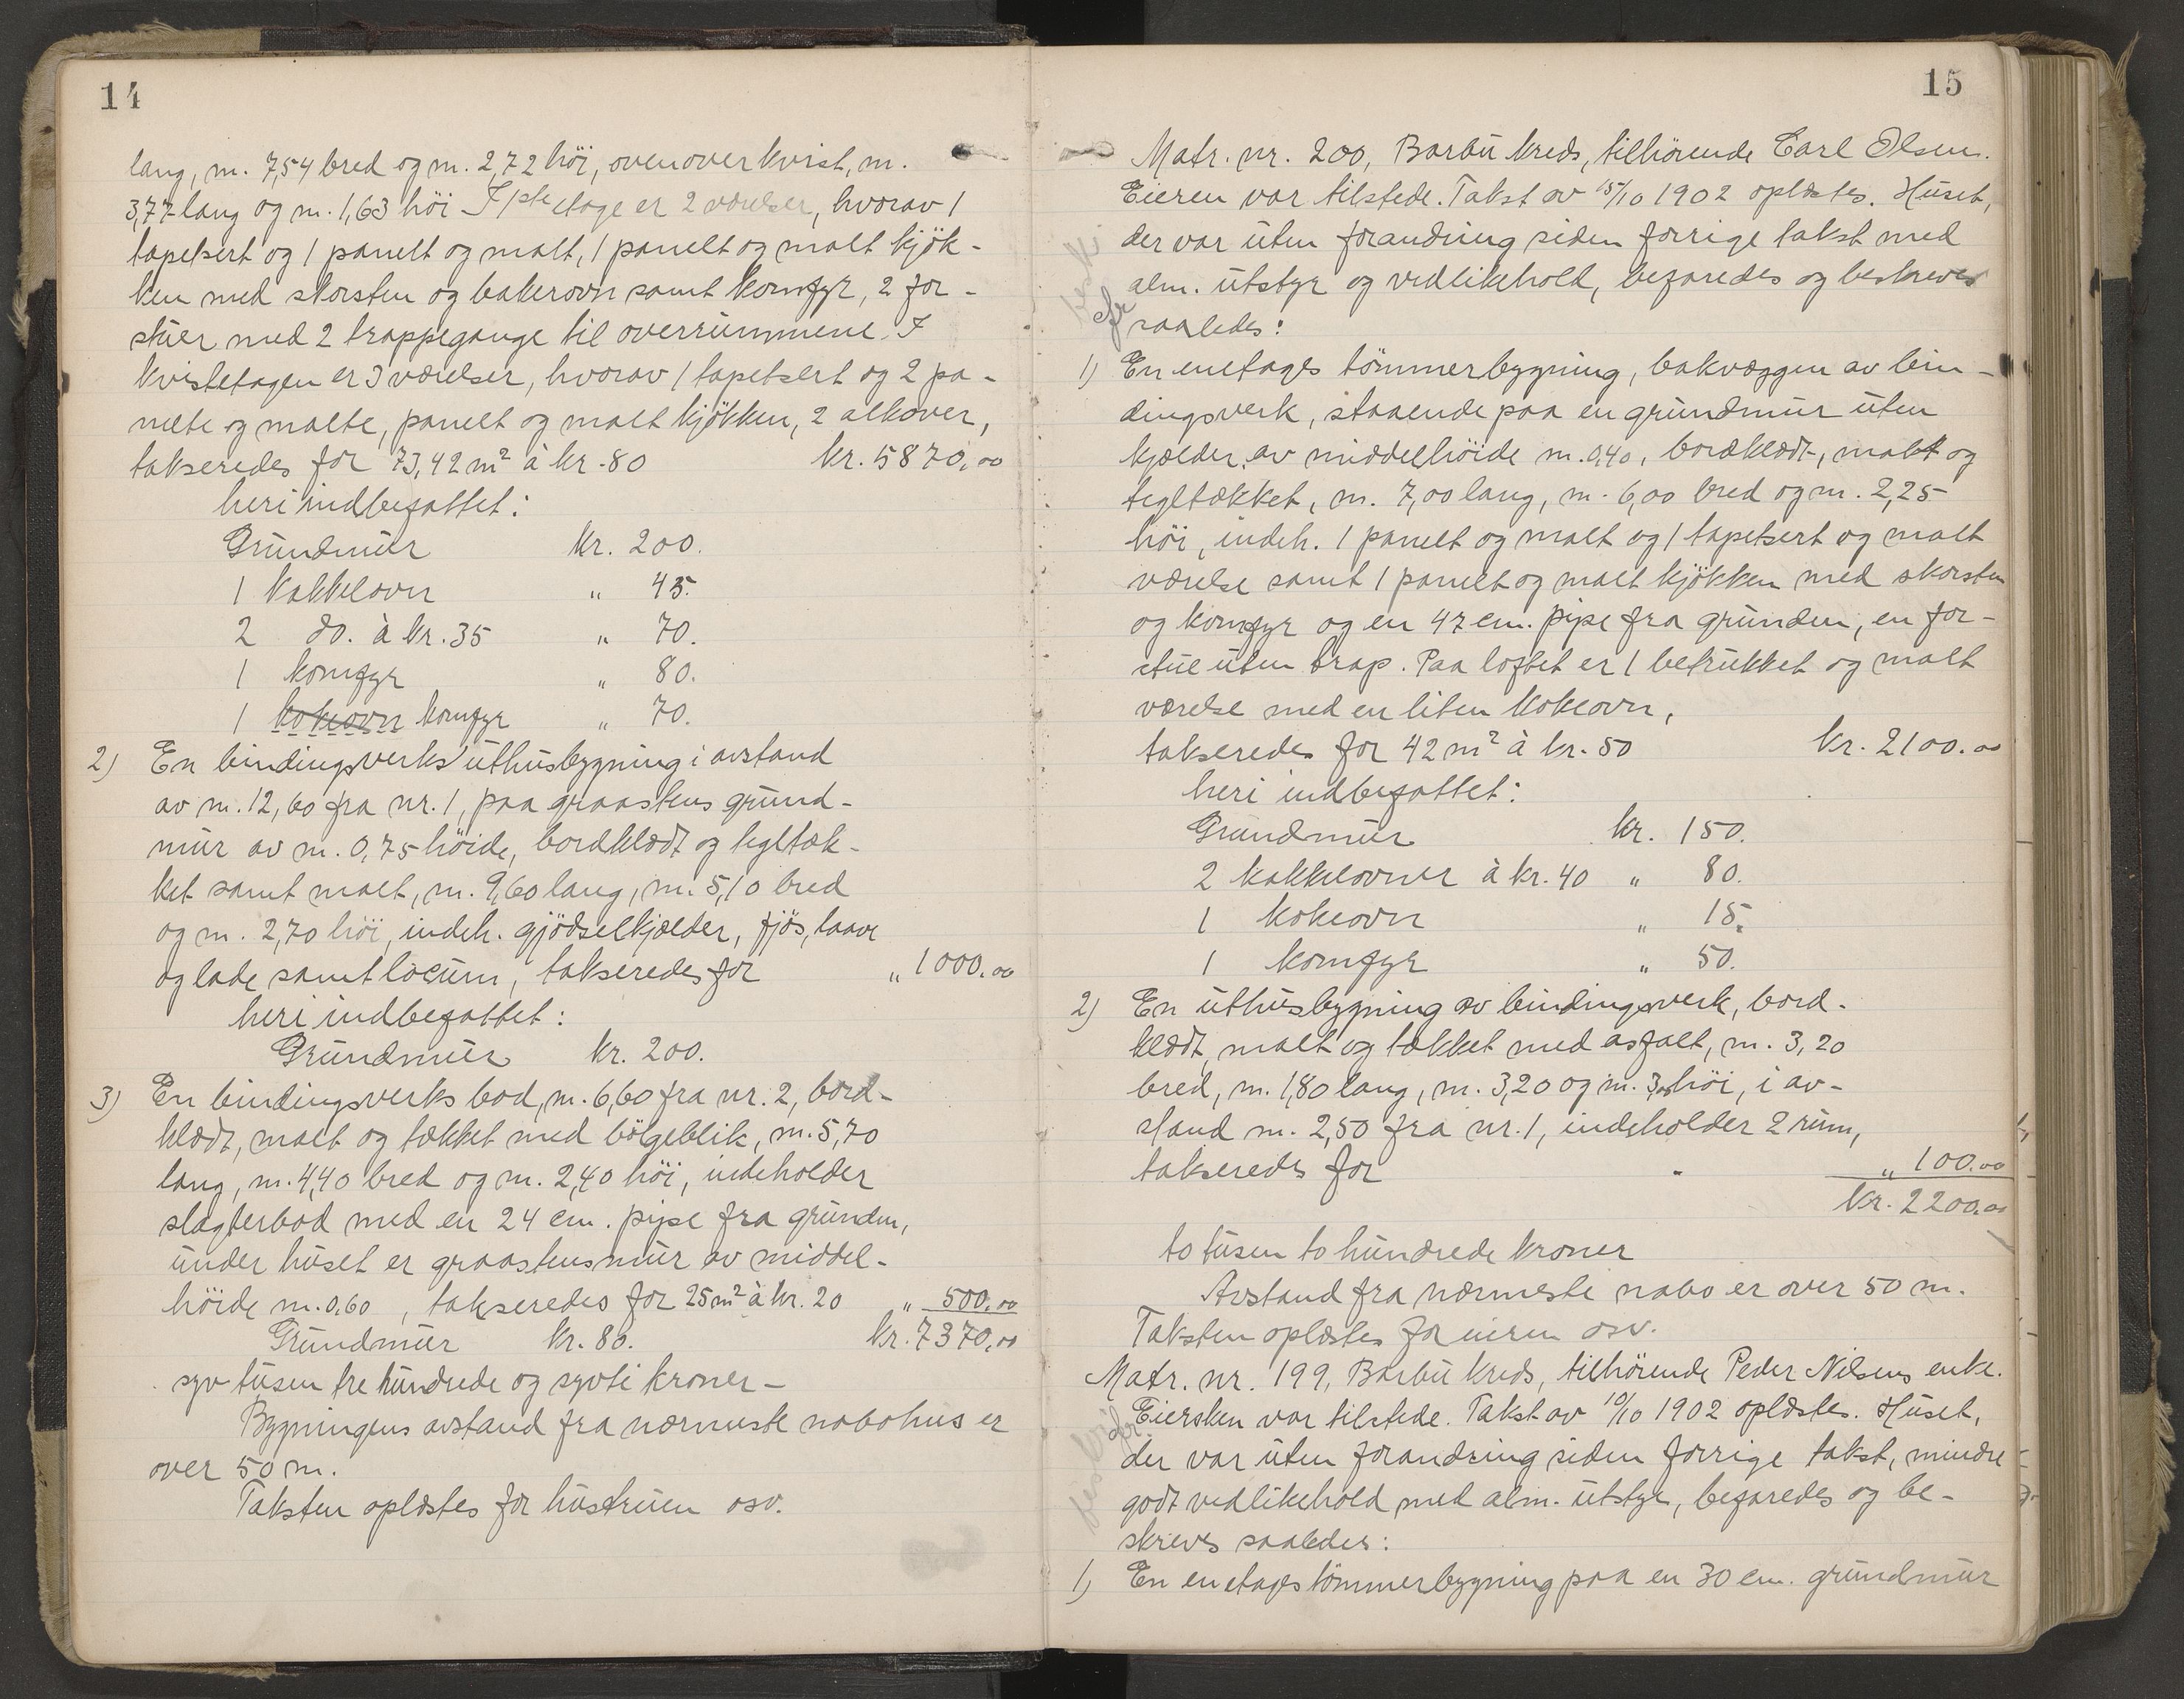 14
lang, m. 7,54 bred og m. 2,72 höi, ovenover kvist, m.
3,77 lang og m. 1,63 höi I 1ste etage er 2 værelser, hvorav 1
tapetsert og 1 panelt og malt, 1 panelt og malt kjök-
ken med skorsten og bakerovn samt komfyr, 2 for-
stuer med 2 trappegange til overrummene. I
kvistetagen er 3 værelser, hvorav 1 tapetsert og 2 pa-
nelte og malte, panelt og malt kjökken, 2 alkover,
takseredes for 73,42 m² à kr. 80 kr. 5870,00
heri indbefattet:
Grundmur kr. 200.
1 kakkelovn " 45.
2 do. à kr. 35 " 70.
1 komfyr " 80.
1 kokeovn komfyr " 70.
2) En bindingsverks uthusbygning i avstand
av m. 12,60 fra nr. 1, paa graastens grund-
mur av m. 0,75 höide, bordklædt og tegltæk-
ket samt malt, m. 9,60 lang, m. 5,10 bred
og m. 2,70 höi, indeh. gjödselkjælder, fjös, laave
og lade samt locum, takseredes for " 1000.00
heri indbefattet:
Grundmur kr. 200.
3) En bindingsverks bod, m. 6,60 fra nr. 2, bord-
klædt, malt og tækket med bölgeblik, m. 5,70
lang, m. 4,40 bred og m. 2,40 höi, indeholder
slagterbod med en 24 cm. pipe fra grunden,
under huset er graastensmur av middel-
höide m. 0,60, takseredes for 25 m² à kr. 20 " 500.00
Grundmur kr. 80. kr. 7370,00
syv tusen tre hundrede og sytti kroner-
Bygningens avstand fra nærmeste nabohus er
over 50 m.
Taksten oplæstes for hustruen osv.
15
Matr. nr. 200, Barbu kreds, tilhörende Carl Olsen.
Eieren var tilstede. Takst av 15/10 1902 oplæstes. Huset,
der var uten forandring siden forrige takst med
alm. utstyr og vedlikehold, befaredes og beskreves
saaledes:
1) En enetages tömmerbygning, bakvæggen av bin-
dingsverk, staaende paa en grundmur uten
kjælder, av middelhöide m. 0,40, bordklædt, malt og
tegltækket, m. 7,00 lang, m. 6,00 bred og m. 2,25
höi, indeh. 1 panelt og malt og 1 tapetsert og malt
værelse samt 1 panelt og malt kjökken med skorsten
og komfyr og en 47 cm. pipe fra grunden, en for-
stue uten trap. Paa loftet er 1 betrukket og malt
værelse med en liten kokeovn,
takseredes for 42 m² à kr. 50 kr. 2100.00
heri indbefattet:
Grundmur kr. 150.
2 kakkelovner à kr. 40 " 80.
1 kokeovn " 15.
1 komfyr " 50.
2) En uthusbygning av bindingsverk, bord-
klædt, malt og tækket med asfalt, m. 3,20
bred, m. 1,80 lang, m. 3,20 og m. 3,00 höi, i av-
stand m. 2,50 fra nr. 1, indeholder 2 rum,
takseredes for " 100.00
kr. 2200.00
to tusen to hundrede kroner
Avstand fra nærmeste nabo er over 50 m.
Taksten oplæstes for eieren osv.
Matr. nr. 199, Barbu kreds, tilhörende Peder Nilsens enke.
Eiersken var tilstede. Takst av 10/10 1902 oplæstes. Huset,
der var uten forandring siden forrige takst, mindre
godt vedlikehold med alm. utstyr, befaredes og be-
skreves saaledes:
1) En enetages tömmerbygning paa en 30 cm. grundmur